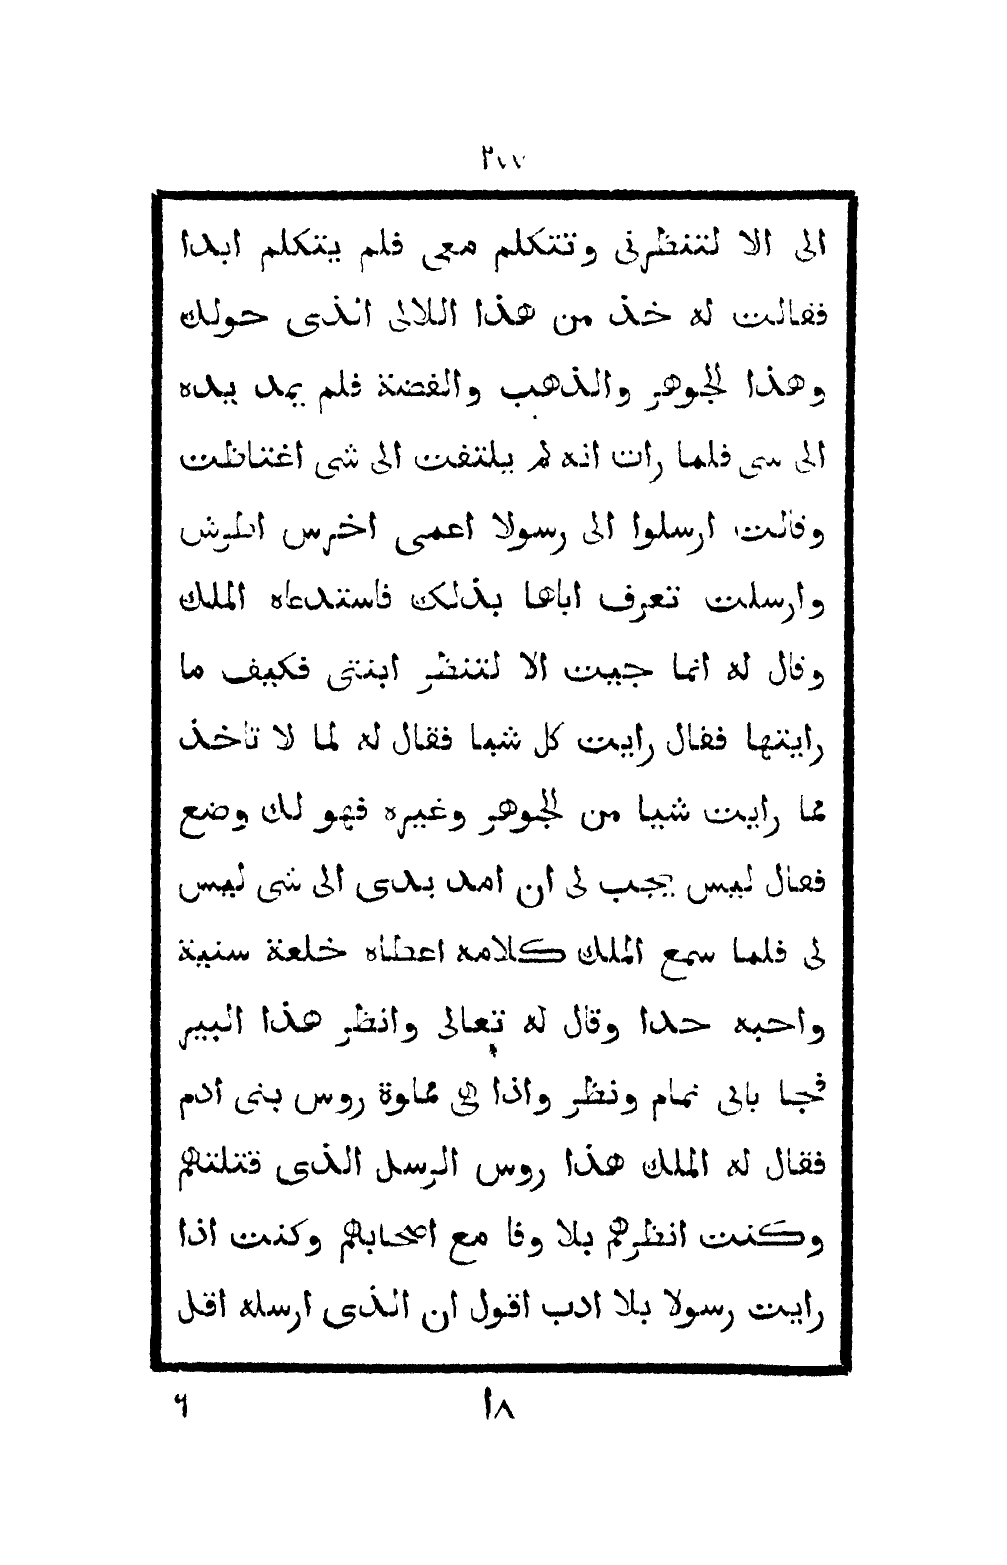 ٢٧٧
الى الا لتنظرنى وتتكلم معى فلم يتكلم ابدا
فقالت له خذ من هذا اللالى الذى حولك
وهذا الجوهر والذهب والفضة فلم يمد يده
الى سى فلما رات انه لم يلتفت الى شى اغتاظت
وقالت ارسلوا الى رسولا اعمى اخرس اطرش
وارسلت تعرف اباها بذلك فاستدعاه الملك
وقال له انما جيت الا لتنظر ابنتى فكيف ما
رايتها فقال رايت كل شيا فقال له لما لا تاخذ
مما رايت شيا من الجوهر وغيره فهو لك وضع
فقال ليس يجب لى ان امد يدى الى شى ليس
لى فلما سمع الملك كلامه اعطاه خلعة سنية
واحبه حدا وقال له تعالى وانظر هذا البير
فجا بانى تمام ونظر واذا هى مملوة روس بنى ادم
فقال له الملك هذا روس الرسل الذى قتلتهم
وكنت انظرهم بلا وفا مع اصحابهم وكنت اذا
رايت رسولا بلا ادب اقول ان الذى ارسله اقل
١٨
٦